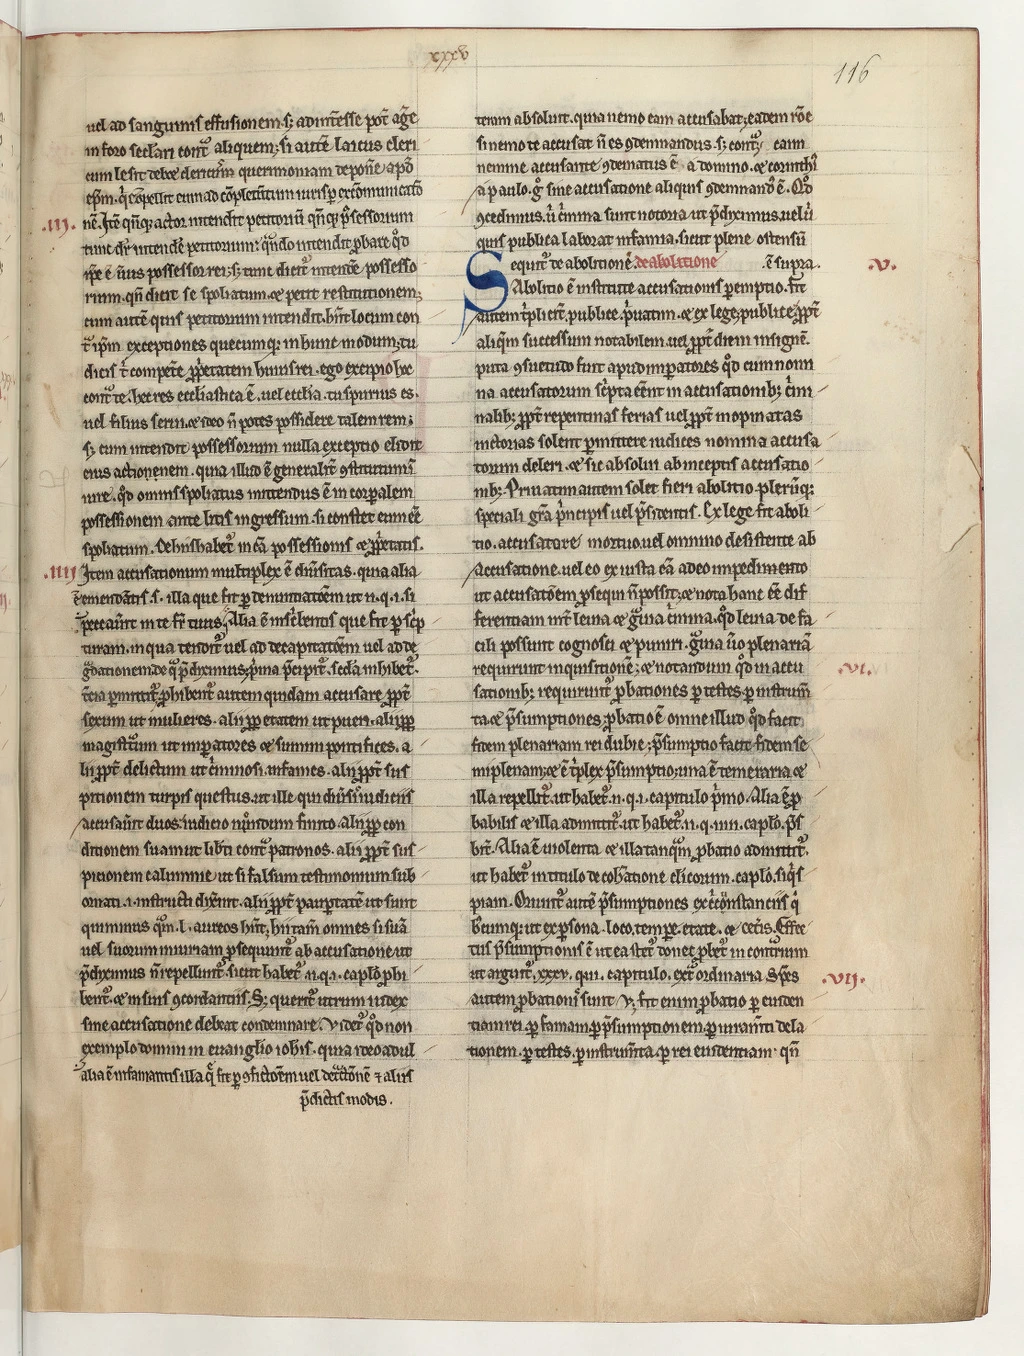 xxxv
116
uel ad sanguinis effusionem. sʒ ad int̄esse pōt aḡe
in foro sec̄lari cont̉ aliquem; si autē laicus cleri
cum leserit debet clericum querimoniam depon̄e apđ
ep̄m. q̉ cōpellit eum ad cōpletitum iuris ꝑ excōmunicatō
.III. nē. Itē qn̄qꝫ actor intendit petitoriū qn̄qꝫ p̄sessorium
tunc dr̄ intendē petitorium; qn̄do intendit ꝓbare qđ
ip̄e ē ūus possessor rei; sʒ tunc dicit̉ intendē possesso
rium. qn̄ dicit se spoliatum. ⁊ petit restitutionem;
cum autē quis petitorium intendit. hn̄t locum con
t̉ ip̄m exceptiones quecumqꝫ in hunc modum; tu
dicis t̉ compete ꝓp̉etatem huius rei. ego excipio
cont̉ te. hec res ecclesiastica ē. uel ecclīa. tu spurius es.
uel filius serui. ⁊ ideo n̄ potes possidere talem rem;
sʒ cum intendit possessorium nulla exceptio elidit
eius actionem. quia illud ē generalit̉ ↄstitutum
iure. qđ omnis spoliatus mittendus ē in corꝑalem
possessionem ante litis ingressum. si constet eum eē
spoliatum. De his habet̉ in cā possessionis ⁊ ꝓp̉etatis.
.IIII. Item accusationum multiplex ē diūsitas. quia alia
ē emendātis. s. illa que fit ꝑ denuntiatōem ut .ii. q. i. si
peccaūit in te fr̄ tuus. Alia ē inscribentis que fit ꝑ sc̉p
turam. in qua tendit̉ uel ad decapitatōem uel ad de
g̉dationem de q̉ p̄diximus; p̉ma p̄cipit̉. scđa inhibet̉.
t̄cia ꝑmittit̉. ꝓhibent̉ autem quidam accusare ꝓpt̉
sexum ut mulieres. alii ꝓp̉ etatem ut pueri. alii ꝓp̉
magist̉tum ut imꝑatores ⁊ summi pontifices. a
lii ꝓpt̉ delictum ut c̉minosi. infames. alii ꝓpt̉ sus
pitionem turpis questus. ut ille qui diūsis iudiciis
accusaūit duos. iudicio nondum finito. alii ꝓp̉ con
ditionem suam ut lib̉ti cont̉ patronos. alii ꝓpt̉ sus
picionem calumnie ut si falsum testimonium sub
ornati. i. instructi dixerint. alii ꝓpt̉ pauꝑtatē ut sunt
qui minus qm̄ .l. aureos hn̄t; hii tam̄ omnes si suā
uel suorum iniuriam ꝑsequunt̉ ab accusatione ut
p̄diximus n̄ repellunt̉. sicut habet̉ .ii. q. i. caplō p̄hi
bent̉. ⁊ in suis ↄcordantiis. Sʒ querit̉ utrum iudex
sine accusatione debeat condemnare. Videt̉ qđ non
exemplo domini in euanglio iohis. quia ideo adul
alia ē infamantis illa q̄ fit ꝑ ↄfictōem uel detractōnē ⁊ aliis
p̄dictis modis.
teram absoluit. quia nemo eam accusabat; eadem rōe
si nemo te accusat n̄ es ↄdemnandus. sʒ cont̉ cain
nemine accusante ↄdemnatus ē a domino. ⁊ corinthi
a paulo. g̉ sine accusatione aliquis ↄdemnand̉ ē. Qđ
ↄcedimus. ū c̉mina sunt notoria ut p̄diximus. uel ū
quis publica laborat infamia. sicut plene ostensū
Sequit̉ de abolitionē. de abolitione ē supra. .V.
Abolitio ē institute accusationis ꝑemptio. fit
autem t̉plicit̉. publice. p̉uatim. ⁊ ex lege; publice ꝓpt̉
aliq̉m successum notabilem. uel ꝓpt̉ diem insignē.
puta ↄsuetudo fuit apud imꝑatores qđ cum nomi
na accusatorum sc̉pta eēnt in accusationibꝫ c̉mi
nalibꝫ ꝓpt̉ repentinas ferias uel ꝓpt̉ inopinatas
uictorias solent ꝑmittere iudices nomina accusa
torum deleri. ⁊ sic absolui ab inceptis accusatio
nibꝫ. Priuatim autem solet fieri abolitio plerūqꝫ
speciali gr̄a p̉ncipis uel p̄sidentis. Ex lege fit aboli
tio. accusatore mortuo. uel omnino desistente ab
accusatione. uel eo ex iusta cā a deo impedimento
ut accusatōem ꝑsequi n̄ possit; ⁊ nota hanc eē dif
ferentiam int̉ leuia ⁊ g̉uia c̉mina. qđ leuia de fa
cili possunt cognosci ⁊ puniri. g̉uia ūo plenariā
requirunt inquisitionē; ⁊ notandum qđ in accu .VI.
sationibꝫ requirunt̉ ꝓbationes ꝑ testes. ꝑ instrum̄
ta. ⁊ p̄sumptiones; ꝓbatio ē omne illud qđ facit
fidem plenariam rei dubie; p̄sumptio facit fidem se
miplenam; ⁊ ē t̉plex p̄sumptio; una ē temeraria ⁊
illa repellit̉. ut habet̉ .ii. q. i. capitulo p̉mo. Alia ē ꝓ
babilis ⁊ illa admittit̉. ut habet̉ .ii. q. iiii. caplō. p̄s
bit̉. Alia ē uiolenta ⁊ illa tanq̉m ꝓbatio admittit̉.
ut habet̉ in titulo de cohītatione clicorum. caplō. si q̉s
piam. Oriunt̉ autē p̄sumptiones ex circūstanciis q̉
buscumqꝫ. ut ex ꝑsona. loco. temꝑe. etate. ⁊ cet̉is. Effec
tus p̄sumptionis ē ut ea stet̉ donec ꝓbet̉ in contrium
ut arguit̉ .xxxv. q. vi. capitulo. ext̉ordinaria. Sp̄es .VII.
autem ꝓbationis sunt .V. fit enim ꝓbatio ꝑ euiden
tiam rei. ꝑ famam. ꝑ p̄sumptionem. ꝑ iuram̄ti dela
tionem. ꝑ testes. ꝑ instrum̄ta. ꝑ rei euidentiam. qn̄